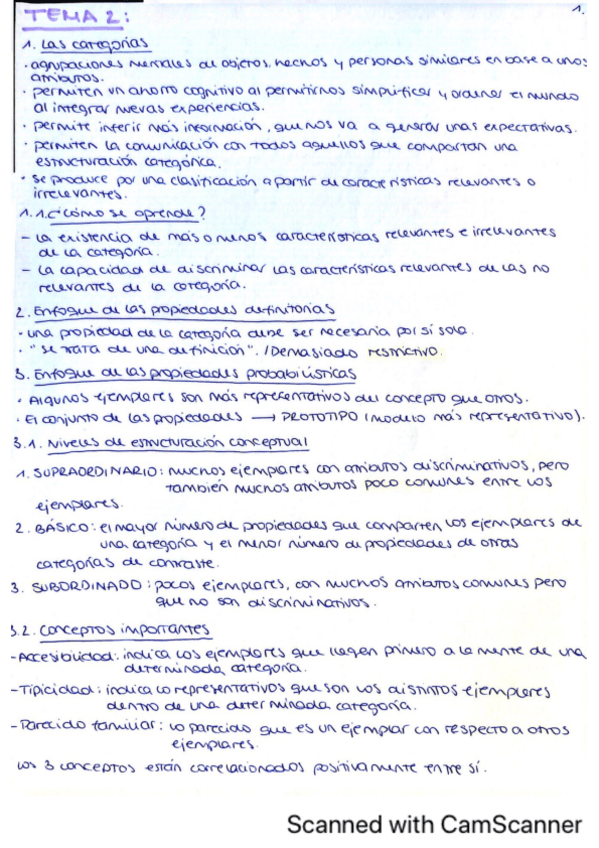 1.
TEMA 2:
1. Las categorías
· agrupaciones mentales de objetos, hechos y personas similares en base a unos
atributos.
· permiten un ahorro cognitivo al permitirnos simplificar y ordenar el mundo
al integrar nuevas experiencias.
· permite inferir más información, que nos va a generar unas expectativas.
· permiten la comunicación con todos aquellos que compartan una
estructuración categórica.
· se produce por una clasificación a partir de características relevantes o
irrelevantes.
1.1. ¿cómo se aprende?
- La existencia de más o menos características relevantes e irrelevantes
de la categoría.
- La capacidad de discriminar las características relevantes de las no
relevantes de la categoría.
2. Enfoque de las propiedades definitorias
· una propiedad de la categoría debe ser necesaria por sí sola.
· "se trata de una definición". /Demasiado restrictivo.
3. Enfoque de las propiedades probabilísticas
· Algunos ejemplares son más representativos del concepto que otros.
· El conjunto de las propiedades → PROTOTIPO (modelo más representativo).
3.1. Niveles de estructuración conceptual
1. SUPRAORDINARIO: muchos ejemplares con atributos discriminativos, pero
también muchos atributos poco comunes entre los
ejemplares.
2. BÁSICO: el mayor número de propiedades que comparten los ejemplares de
una categoría y el menor número de propiedades de otras
categorías de contraste.
3. SUBORDINADO: pocos ejemplares, con muchos atributos comunes pero
que no son discriminativos.
3.2. Conceptos importantes
- Accesibilidad: indica los ejemplares que llegan primero a la mente de una
determinada categoría.
- Tipicidad: indica lo representativos que son los distintos ejemplares
dentro de una determinada categoría.
- Parecido familiar: lo parecido que es un ejemplar con respecto a otros
ejemplares.
Los 3 conceptos están correlacionados positivamente entre sí.
Scanned with CamScanner